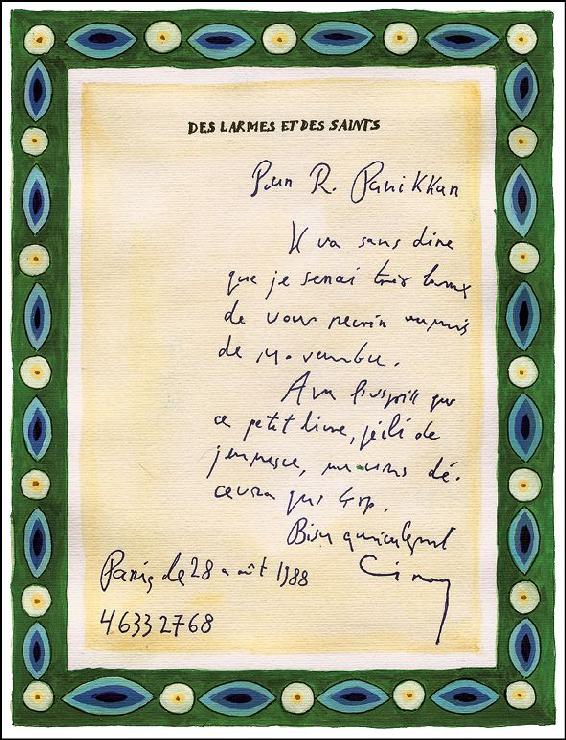 DES LARMES ET DES SAINTS
Pour R. Panikkar
Il va sans dire
que je serai très heureux
de vous revoir au mois
de novembre.
Avec l'espoir que
ce petit livre, péché de
jeunesse, ne vous dé-
cevra pas trop.
Bien amicalement
Paris, le 28 août 1988 Cioran
46332768